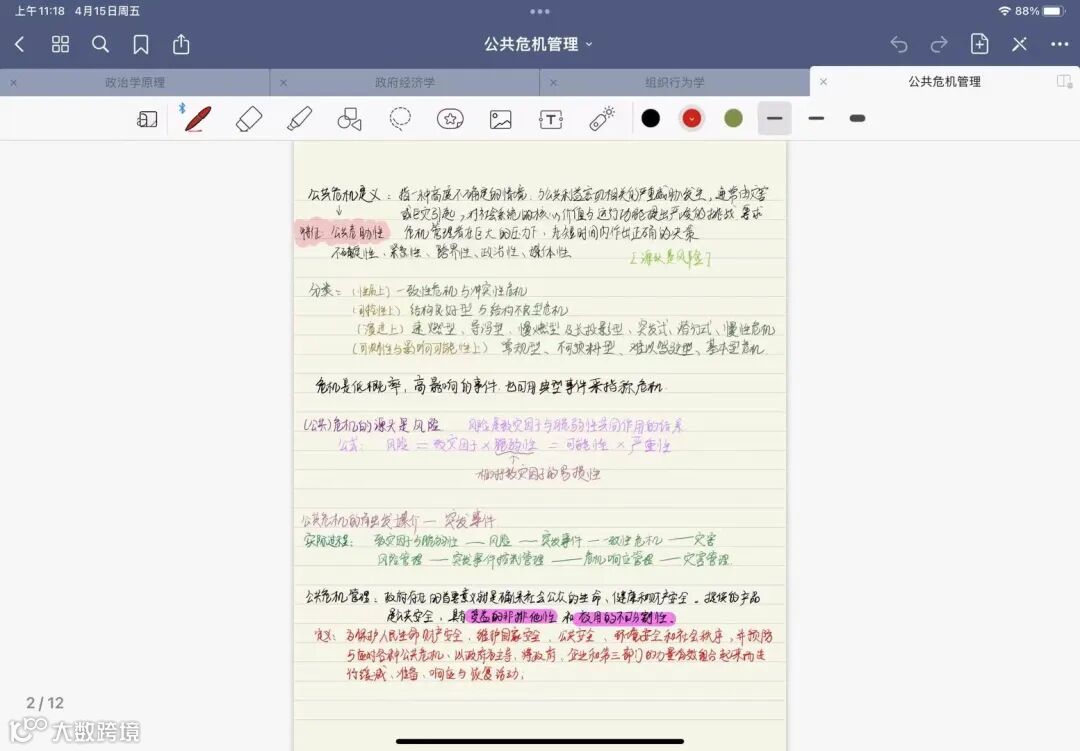 上午11:18 4月15日周五
88%
公共危机管理
政治学原理
政府经济学
组织行为学
公共危机管理
公共危机定义：指一种高度不确定的情景，与公共利益密切相关的严重威胁发生，通常由灾害
或巨灾引起，对社会系统的核心价值与运行功能提出严峻的挑战 要求
特征：公共危害性 危机管理者在巨大的压力下，在短时间内作出正确的决策
不确定性、紧急性、跨界性、政治性、媒体性
[源头是风险]
分类：(性质上) 一致性危机与冲突性危机
(可控性上) 结构良好型与结构不良型危机
(演进上) 速燃型、导泻型、慢燃型及长投影型、突发式、潜分式、慢性危机
(可预测性与影响可能性上) 常规型、不可预料型、难以驾驭型、基本型危机
危机是低概率，高影响的事件 也可用典型事件来指称危机
(公共)危机的源头是风险 风险是致灾因子与脆弱性共同作用的结果
公式： 风险 = 致灾因子 × 脆弱性 = 可能性 × 严重性
相对于致灾因子的易损性
公共危机的触发媒介 — 突发事件
实际过程： 致灾因子与脆弱性 — 风险 — 突发事件 — 一致性危机 — 灾害
风险管理 — 突发事件控制管理 — 危机响应管理 — 灾害管理
公共危机管理：政府存在的首要意义就是确保社会公众的生命、健康和财产安全。提供的产品
是公共安全，具有受益的非排他性 和 效用的不可分割性。
定义：为保护人民生命财产安全，维护国家安全、公共安全、环境安全和社会秩序，并预防
与应对各种公共危机，以政府为主导，将政府、企业和第三部门的力量有效组合起来而进
行缓减、准备、响应与恢复活动；
2 / 12
大数跨境